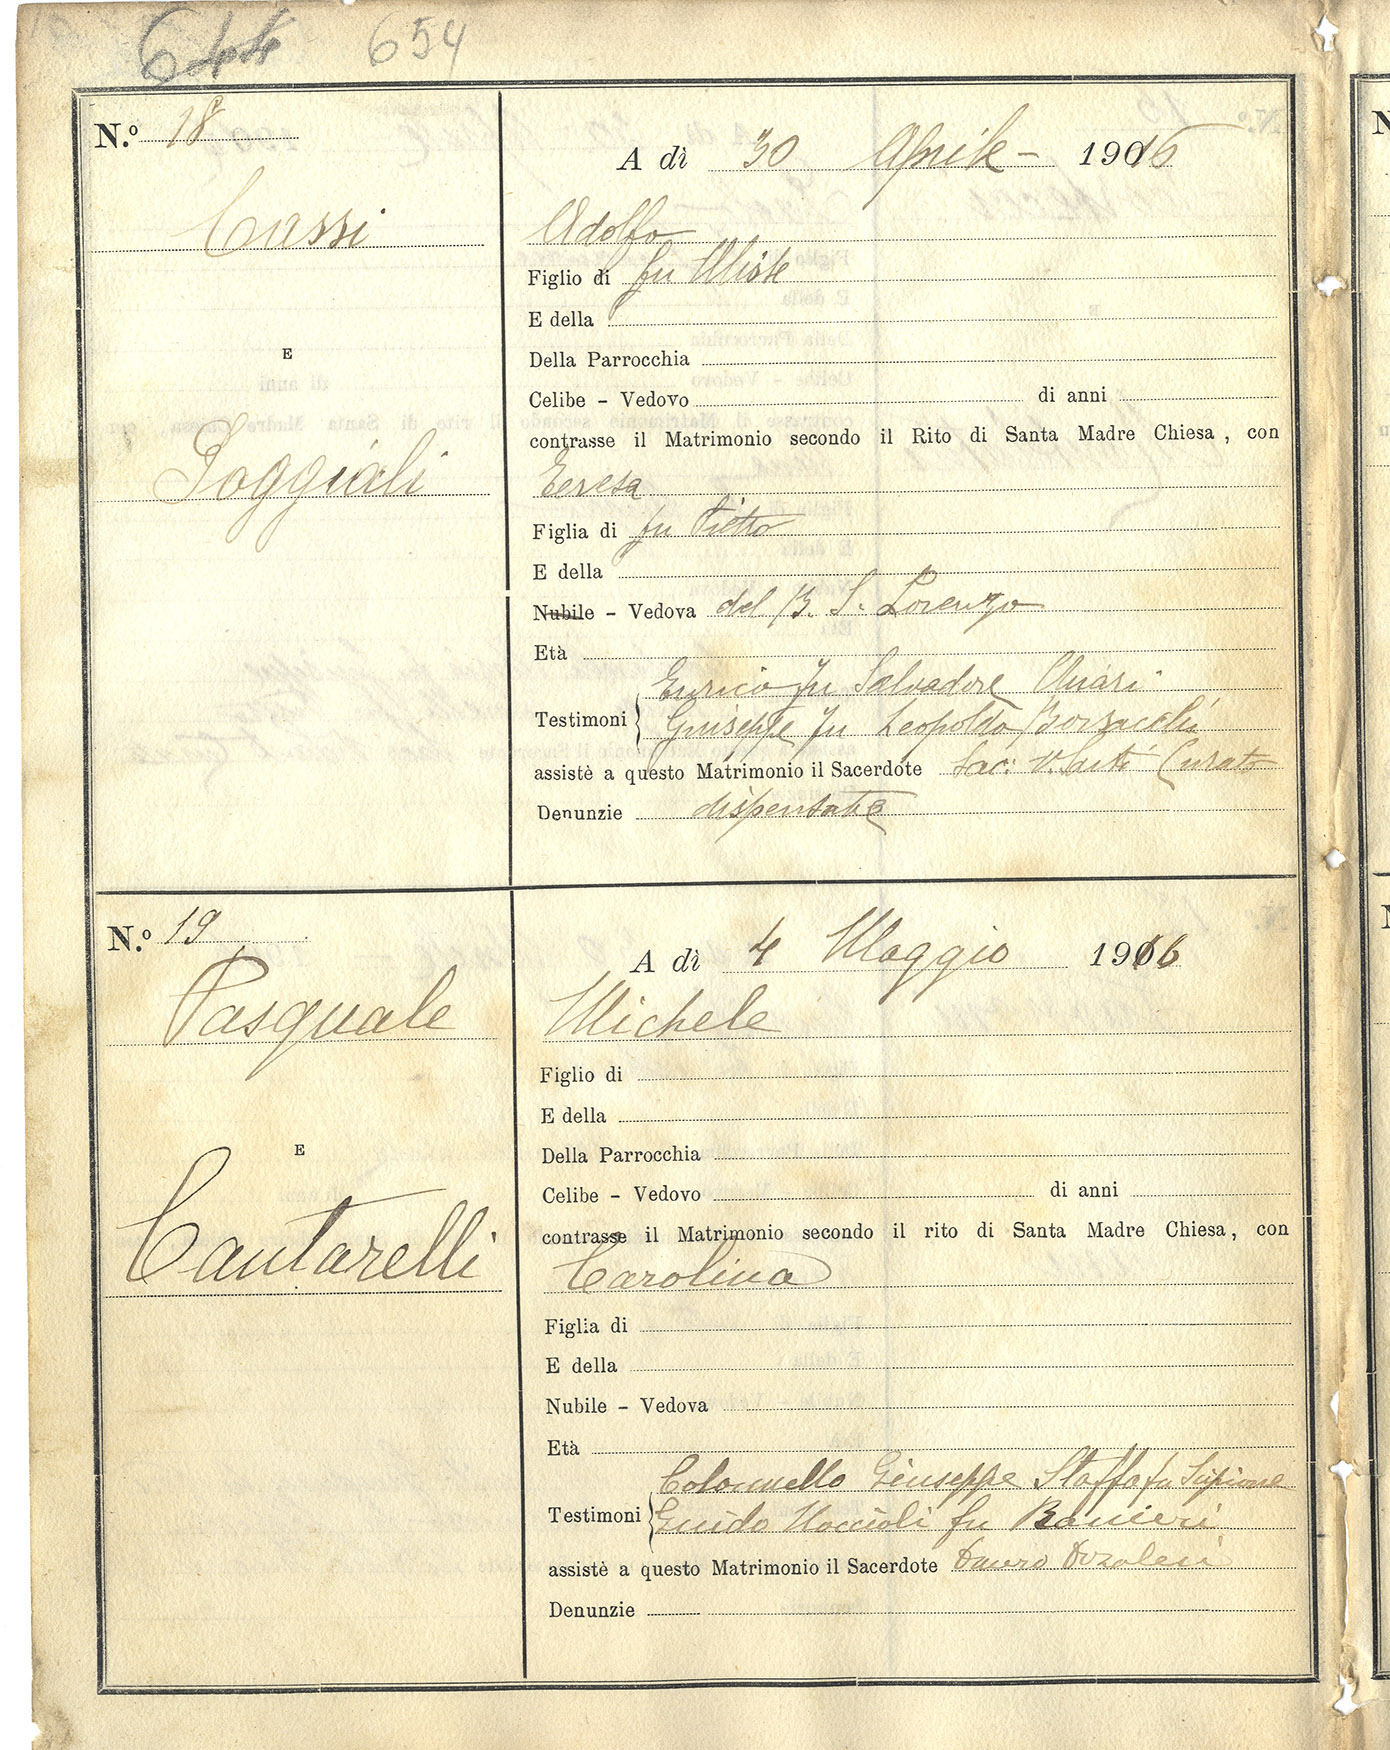 644 654
N.º 18
A dì 30 Aprile - 1916
Cassi
Adolfo
Figlio di fu Oliste
E della
E
Della Parrocchia
Celibe - Vedovo di anni
contrasse il Matrimonio secondo il Rito di Santa Madre Chiesa, con
Poggiali
Teresa
Figlia di fu Pietro
E della
Nubile - Vedova del B. S. Lorenzo
Età
Enrico fu Salvadore Chiari
Testimoni Giuseppe fu Leopoldo
assistè a questo Matrimonio il Sacerdote Sac: V. Sarti Curato
Denunzie dispensate
N.º 19
A dì 4 Maggio 1916
Pasquale
Michele
Figlio di
E della
E
Della Parrocchia
Celibe - Vedovo di anni
contrasse il Matrimonio secondo il rito di Santa Madre Chiesa, con
Cantarelli
Carolina
Figlia di
E della
Nubile - Vedova
Età
Colonnello Giuseppe Staffa fu Scipione
Testimoni Guido Noccioli fu Ranieri
assistè a questo Matrimonio il Sacerdote
Denunzie